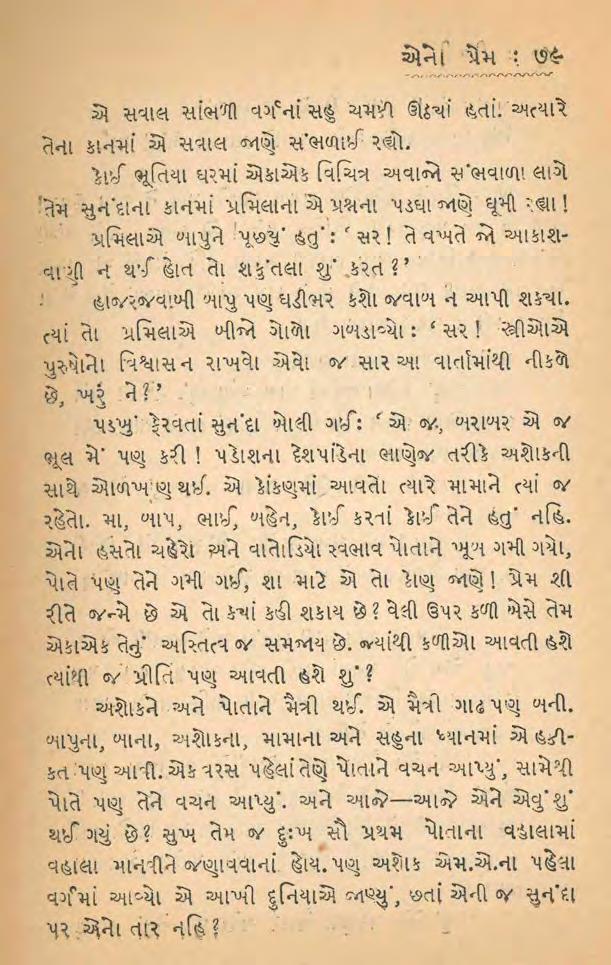 એનો પ્રેમ : ૭૯
એ સવાલ સાંભળી વર્ગનાં સહુ ચમકી ઊઠ્યાં હતાં. અત્યારે
તેના કાનમાં એ સવાલ જાણે સંભળાઈ રહ્યો.
કોઈ ભૂતિયા ઘરમાં એકાએક વિચિત્ર અવાજો સંભવાળા લાગે
તેમ સુનંદાના કાનમાં પ્રમિલાના એ પ્રશ્નના પડઘા જાણે ઘૂમી રહ્યા !
પ્રમિલાએ બાપુને પૂછ્યું હતું : ‘ સર ! તે વખતે જો આકાશ-
વાણી ન થઈ હોત તો શકુંતલા શું કરત ?’
હાજરજવાબી બાપુ પણ ઘડીભર કશો જવાબ ન આપી શક્યા.
ત્યાં તો પ્રમિલાએ બીજો ગોળો ગબડાવ્યો : ‘ સર ! સ્ત્રીઓએ
પુરુષોનો વિશ્વાસ ન રાખવો એવો જ સાર આ વાર્તામાંથી નીકળે
છે, ખરું ને ?’
પડખું ફેરવતાં સુનંદા બોલી ગઈ : ‘ એ જ, બરાબર એ જ
ભૂલ મેં પણ કરી ! પડોશના દેશપાંડેના ભાણેજ તરીકે અશોકની
સાથે ઓળખાણ થઈ. એ કોંકણમાં આવતો ત્યારે મામાને ત્યાં જ
રહેતો. મા, બાપ, ભાઈ, બહેન, કોઈ કરતાં કોઈ તેને હતું નહિ.
એનો હસતો ચહેરો અને વાતોડિયો સ્વભાવ પોતાને ખૂબ ગમી ગયો,
પોતે પણ તેને ગમી ગઈ, શા માટે એ તો કોણ જાણે ! પ્રેમ શી
રીતે જન્મે છે એ તો ક્યાં કહી શકાય છે ? વેલી ઉપર કળી બેસે તેમ
એકાએક તેનું અસ્તિત્વ જ સમજાય છે. જ્યાંથી કળીઓ આવતી હશે
ત્યાંથી જ પ્રીતિ પણ આવતી હશે શું ?
અશોકને અને પોતાને મૈત્રી થઈ. એ મૈત્રી ગાઢ પણ બની.
બાપુના, બાના, અશોકના, મામાના અને સહુના ધ્યાનમાં એ હકી-
કત પણ આવી. એક વરસ પહેલાં તેણે પોતાને વચન આપ્યું, સામેથી
પોતે પણ તેને વચન આપ્યું. અને આજે—આજે એને એવું શું
થઈ ગયું છે ? સુખ તેમ જ દુઃખ સૌ પ્રથમ પોતાના વહાલામાં
વહાલા માનવીને જણાવવાનાં હોય. પણ અશોક એમ.એ.ના પહેલા
વર્ગમાં આવ્યો એ આખી દુનિયાએ જાણ્યું, છતાં એની જ સુનંદા
પર એનો તાર નહિ ?